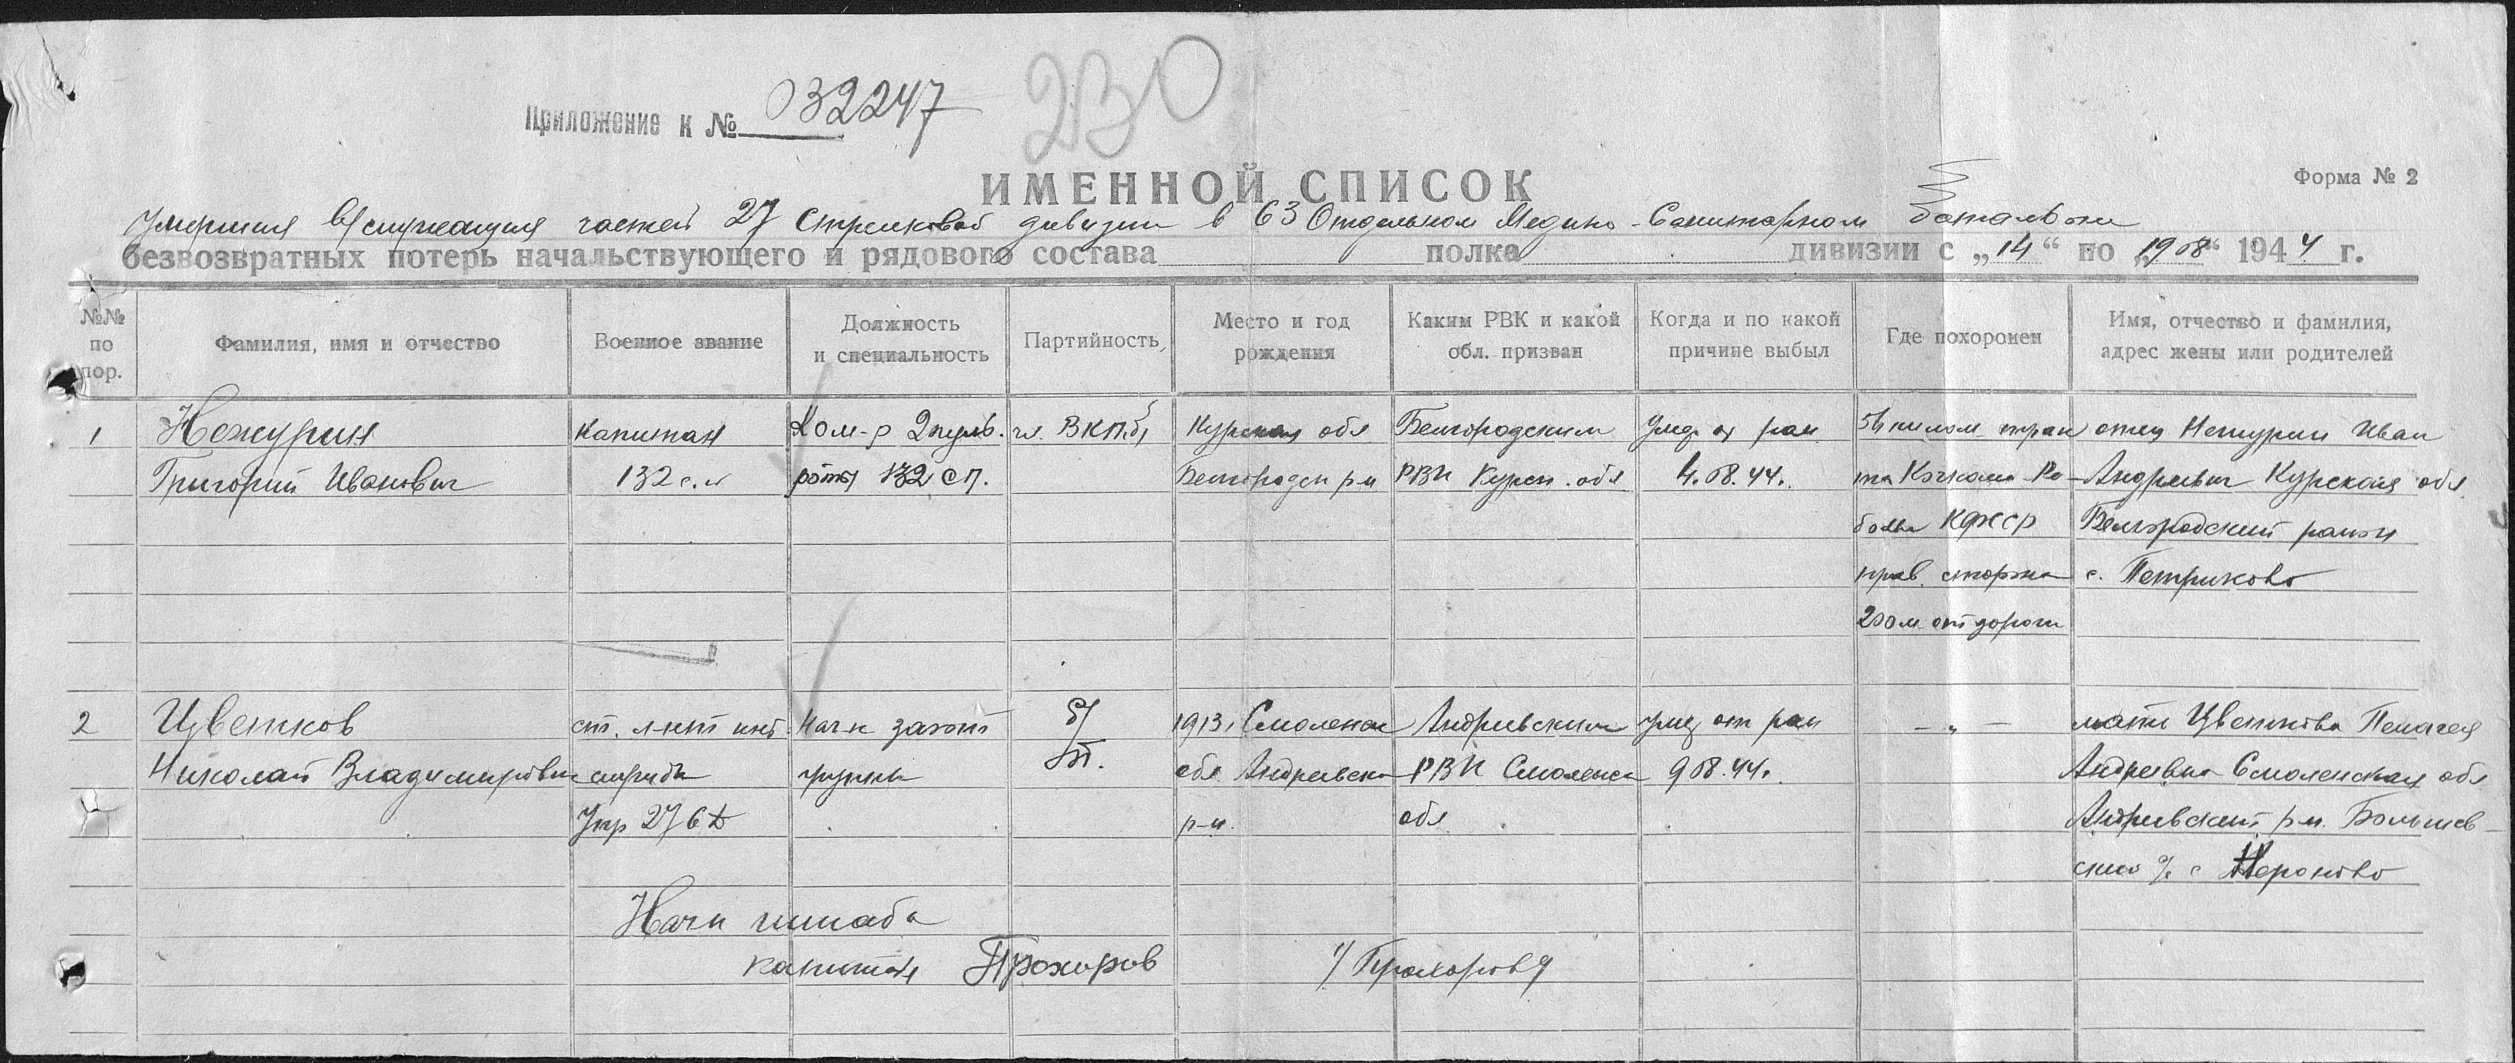 230
Приложение к № 032247
ИМЕННОЙ СПИСОК
Форма № 2
Умерших в/служащих частей 27 Стрелковой дивизии в 63 Отдельном Медико-Санитарном батальоне
безвозвратных потерь начальствующего и рядового состава полка дивизии с „14“ по „19 08“ 1944 г.
№№ по пор. Фамилия, имя и отчество Военное звание Должность и специальность Партийность Место и год рождения Каким РВК и какой обл. призван Когда и по какой причине выбыл Где похоронен Имя, отчество и фамилия, адрес жены или родителей
1 Нежурин капитан Ком-р 2 пульр. чл. ВКП(б) Курская обл Белгородским умер от ран 54 килом. трак отец Нежурин Иван
Григорий Иванович 132 с.п роты 132 СП. Белгородск р-н РВК Курск. обл 4.08.44г. та Кочкома-Ре- Андреевич Курская обл
болы КФССР Белгородский район
прав. сторона с. Петриково
200 м. от дороги
2 Цветков ст. л-нт инт. Нач-к загот б/ 1913г Смоленск Андреевским умер от ран -"- мать Цветкова Пелагея
Николай Владимирович службы группы п. обл Андреевск РВК Смоленск 9 08.44г. Андреевна Смоленская обл
Упр 27 СД р-н. обл Андреевский р-н. Большев-
ский с/с с
Нач штаба
капитан Прохоров /Прохоров/